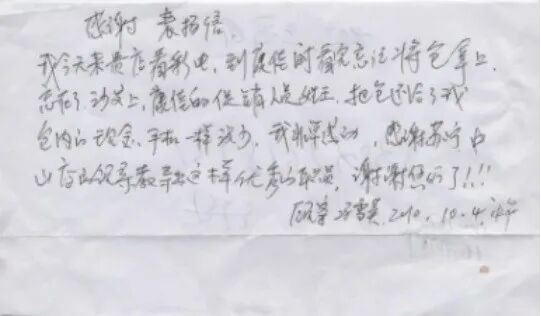 感谢 表扬信
我今天来贵店看彩电，到康佳时看完忘记将包拿上，
忘在了沙发上，康佳的促销人员姓王，把包还给了我
包内的现金、手机一样没少，我非常感动，感谢苏宁中
山店的领导教导出这样优秀的职员，谢谢您们了!!!
顾客 2010.10.4